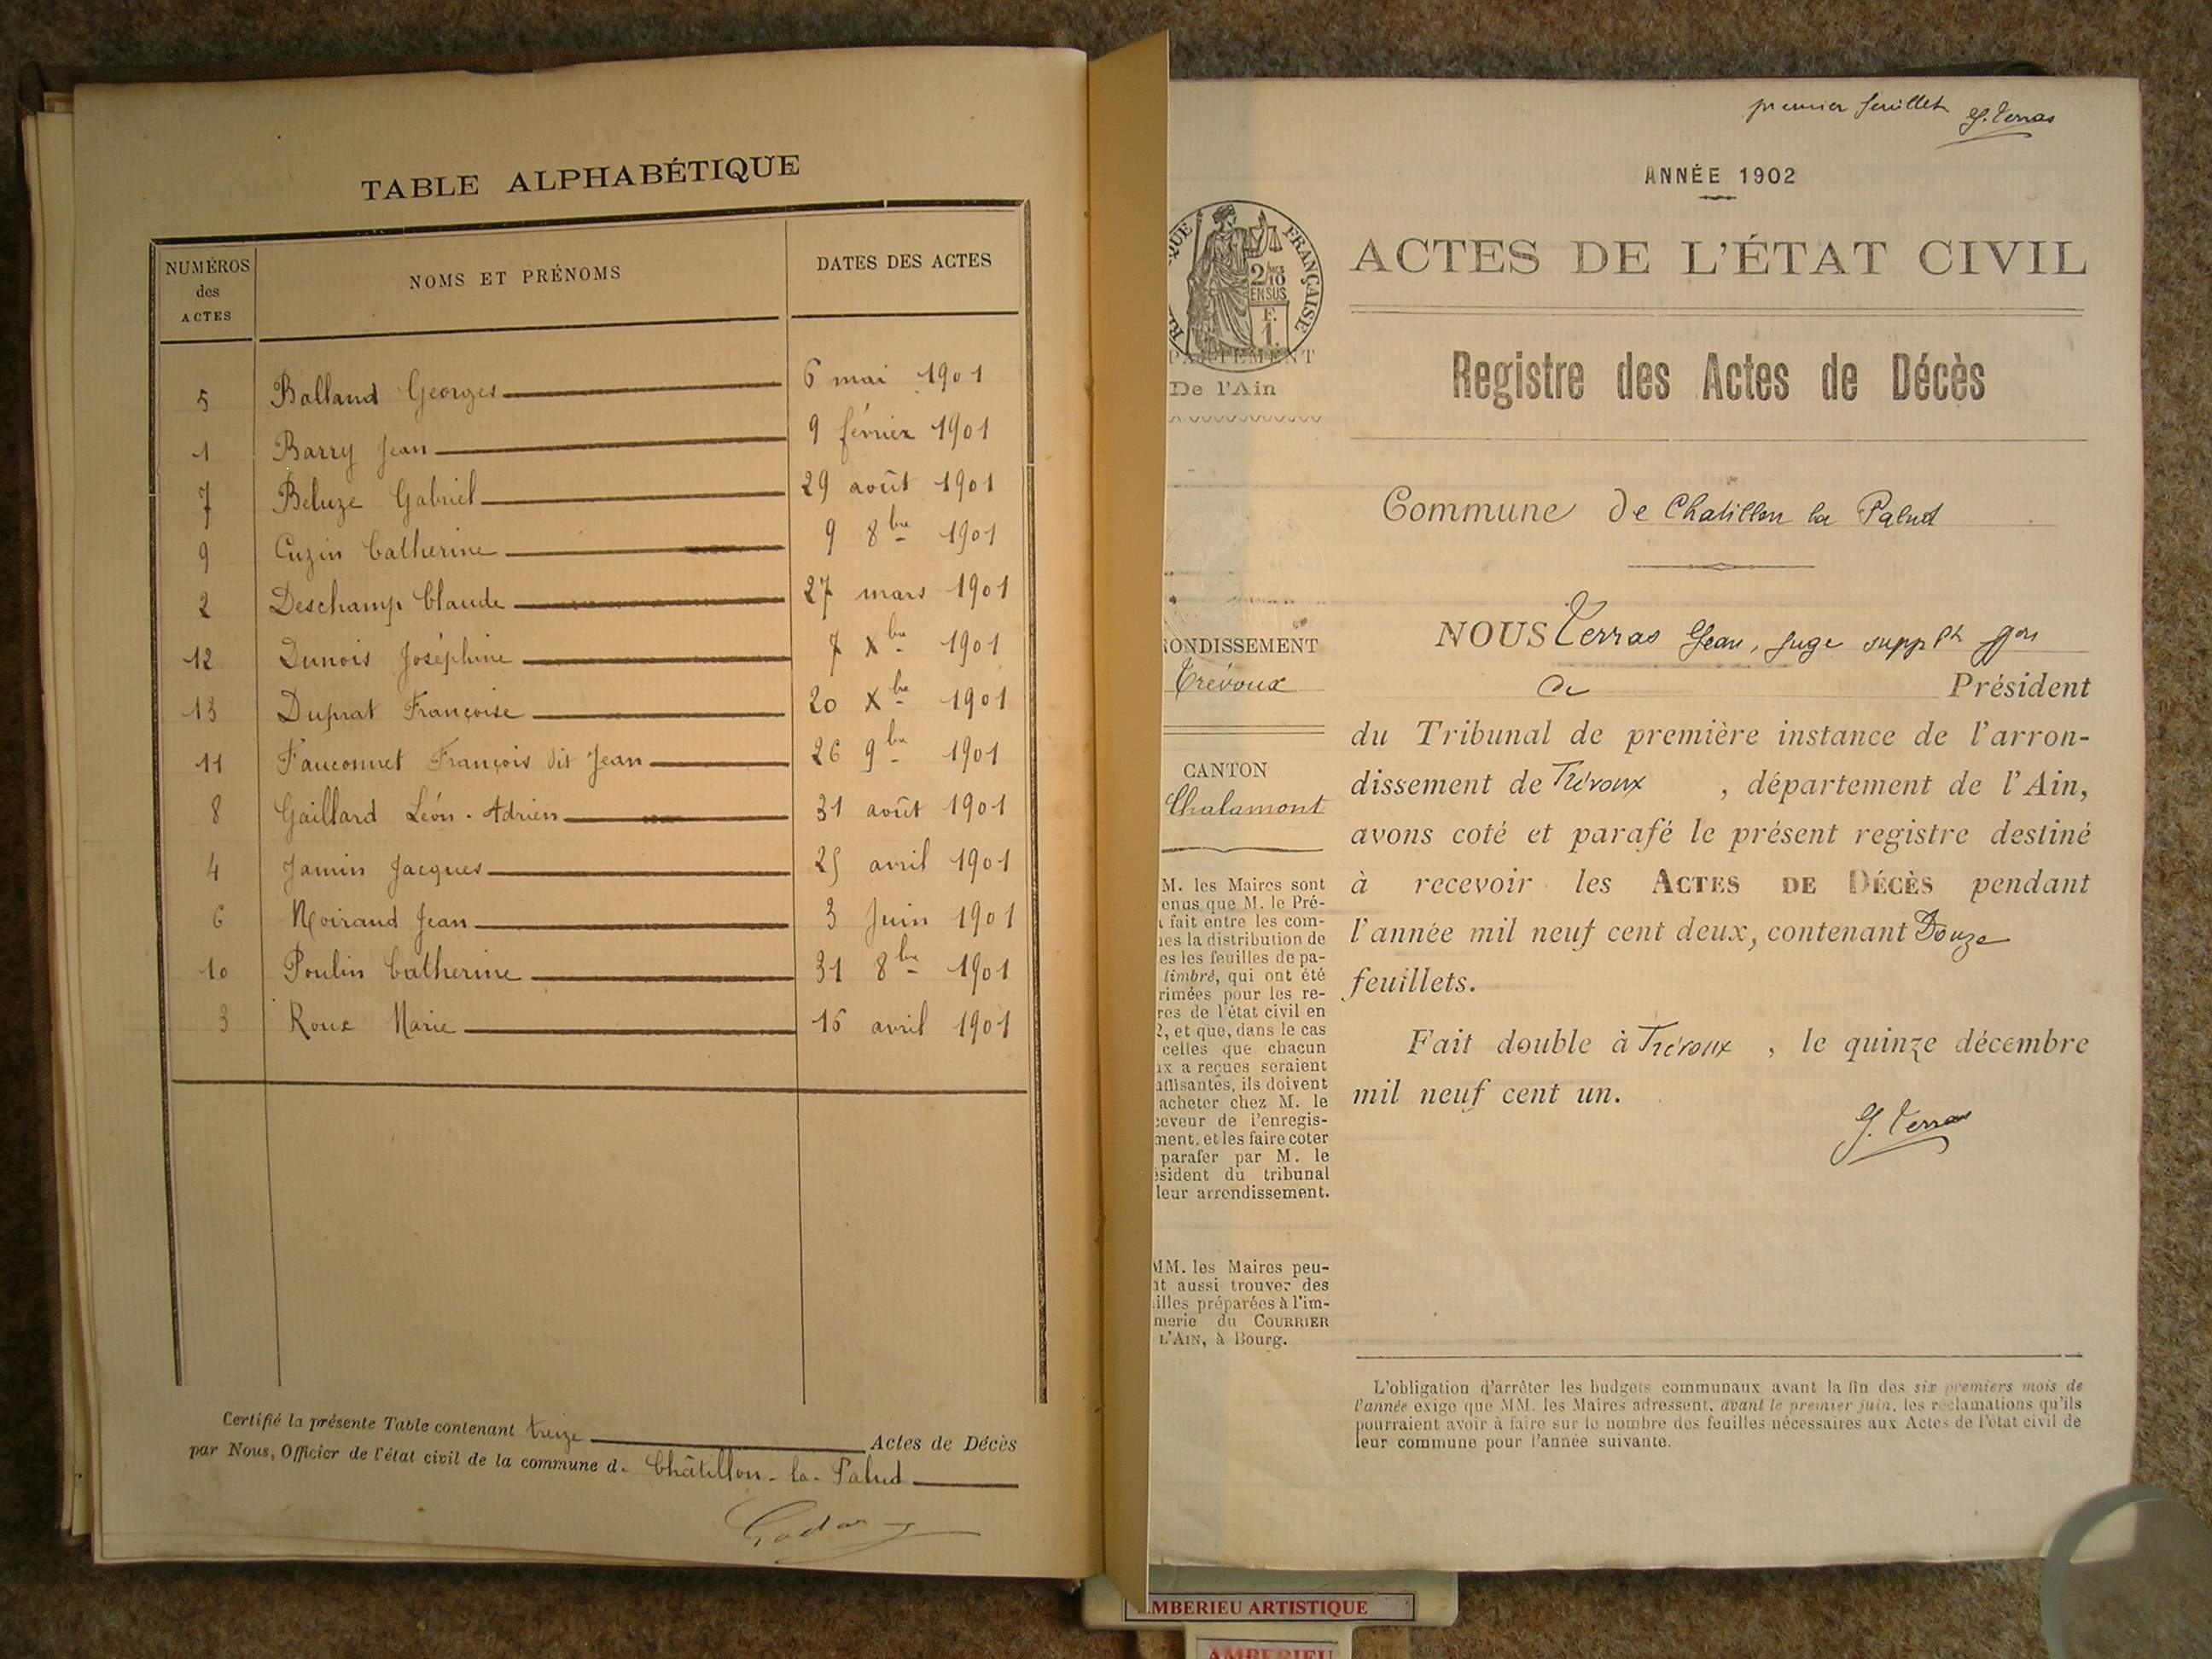 TABLE ALPHABÉTIQUE
NUMÉROS
des
ACTES
NOMS ET PRÉNOMS
DATES DES ACTES
5 Balland Georges 6 mai 1901
1 Barry Jean 9 février 1901
7 Beluze Gabriel 29 août 1901
9 Cuzin Catherine 9 8bre 1901
2 Deschamp Claude 27 mars 1901
12 Dunois Joséphine 7 Xbre 1901
13 Duprat Françoise 20 Xbre 1901
11 Fauconnet François dit Jean 26 9bre 1901
8 Gaillard Léon-Adrien 31 août 1901
4 Jamin Jacques 25 avril 1901
6 Moiraud Jean 3 Juin 1901
10 Poulin Catherine 31 8bre 1901
3 Roux Marie 16 avril 1901
Certifié la présente Table contenant treize Actes de Décès
par Nous, Officier de l'état civil de la commune d. Châtillon-la-Palud
premier feuillet J. Terras
ANNÉE 1902
QUE FRANÇAISE
2/10
EN SUS
F.
1.
PARTEMENT
De l'Ain
ACTES DE L'ÉTAT CIVIL
Registre des Actes de Décès
Commune de Chatillon la Palud
RONDISSEMENT
Trévoux
CANTON
Chalamont
M. les Maires sont
enus que M. le Pré-
t fait entre les com-
nes la distribution de
es les feuilles de pa-
timbré, qui ont été
rimées pour les re-
res de l'état civil en
2, et que, dans le cas
celles que chacun
ux a reçues seraient
uffisantes, ils doivent
acheter chez M. le
ceveur de l'enregis-
ment, et les faire coter
parafer par M. le
ésident du tribunal
leur arrondissement.
MM. les Maires peu-
nt aussi trouver des
illes préparées à l'im-
merie du COURRIER
L'AIN, à Bourg.
NOUS Terras Jean, juge suppt
de Président
du Tribunal de première instance de l'arron-
dissement de Trévoux , département de l'Ain,
avons coté et parafé le présent registre destiné
à recevoir les ACTES DE DÉCÈS pendant
l'année mil neuf cent deux, contenant Douze
feuillets.
Fait double à Trévoux , le quinze décembre
mil neuf cent un.
J. Terras
L'obligation d'arrêter les budgets communaux avant la fin des six premiers mois de
l'année exige que MM. les Maires adressent, avant le premier juin, les réclamations qu'ils
pourraient avoir à faire sur le nombre des feuilles nécessaires aux Actes de l'état civil de
leur commune pour l'année suivante.
MBERIEU ARTISTIQUE
AMBERIEU